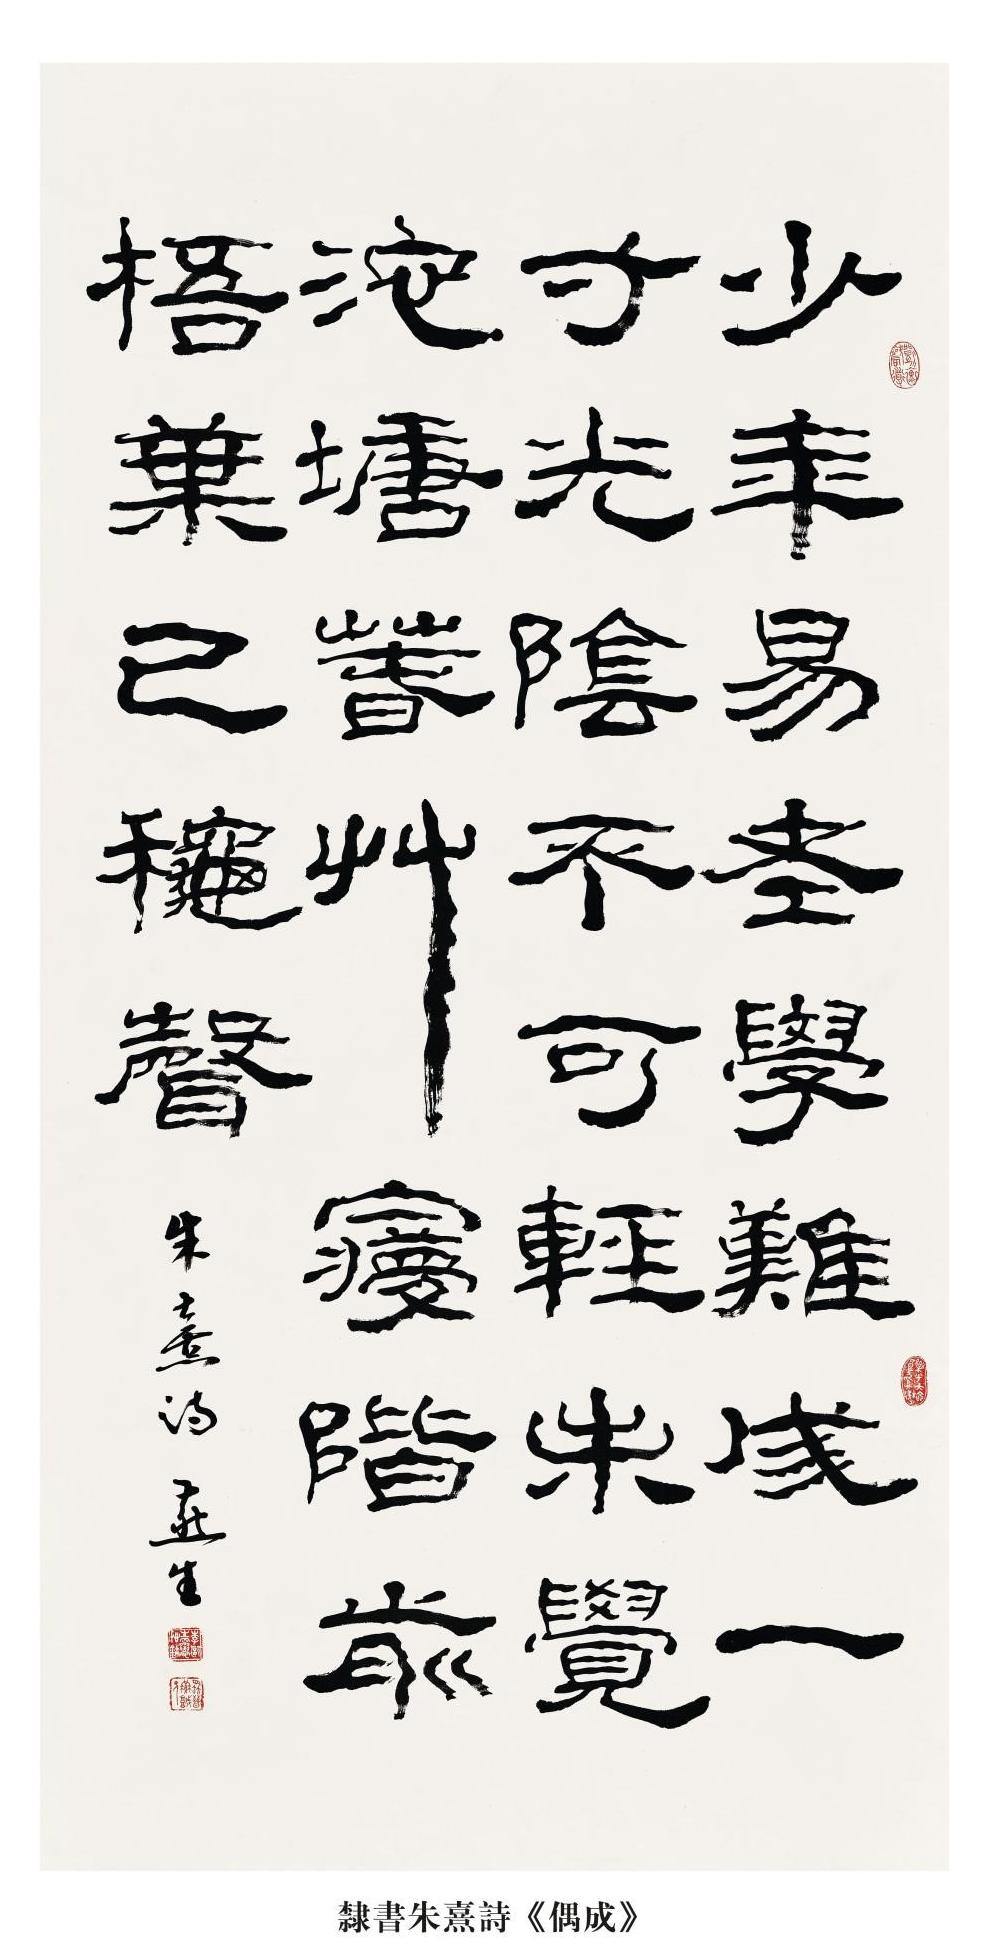 少年易老學難成一
寸光陰不可輕未覺
池塘春艸夢階前
梧葉已龝聲
朱熹詩 生
隸書朱熹詩《偶成》